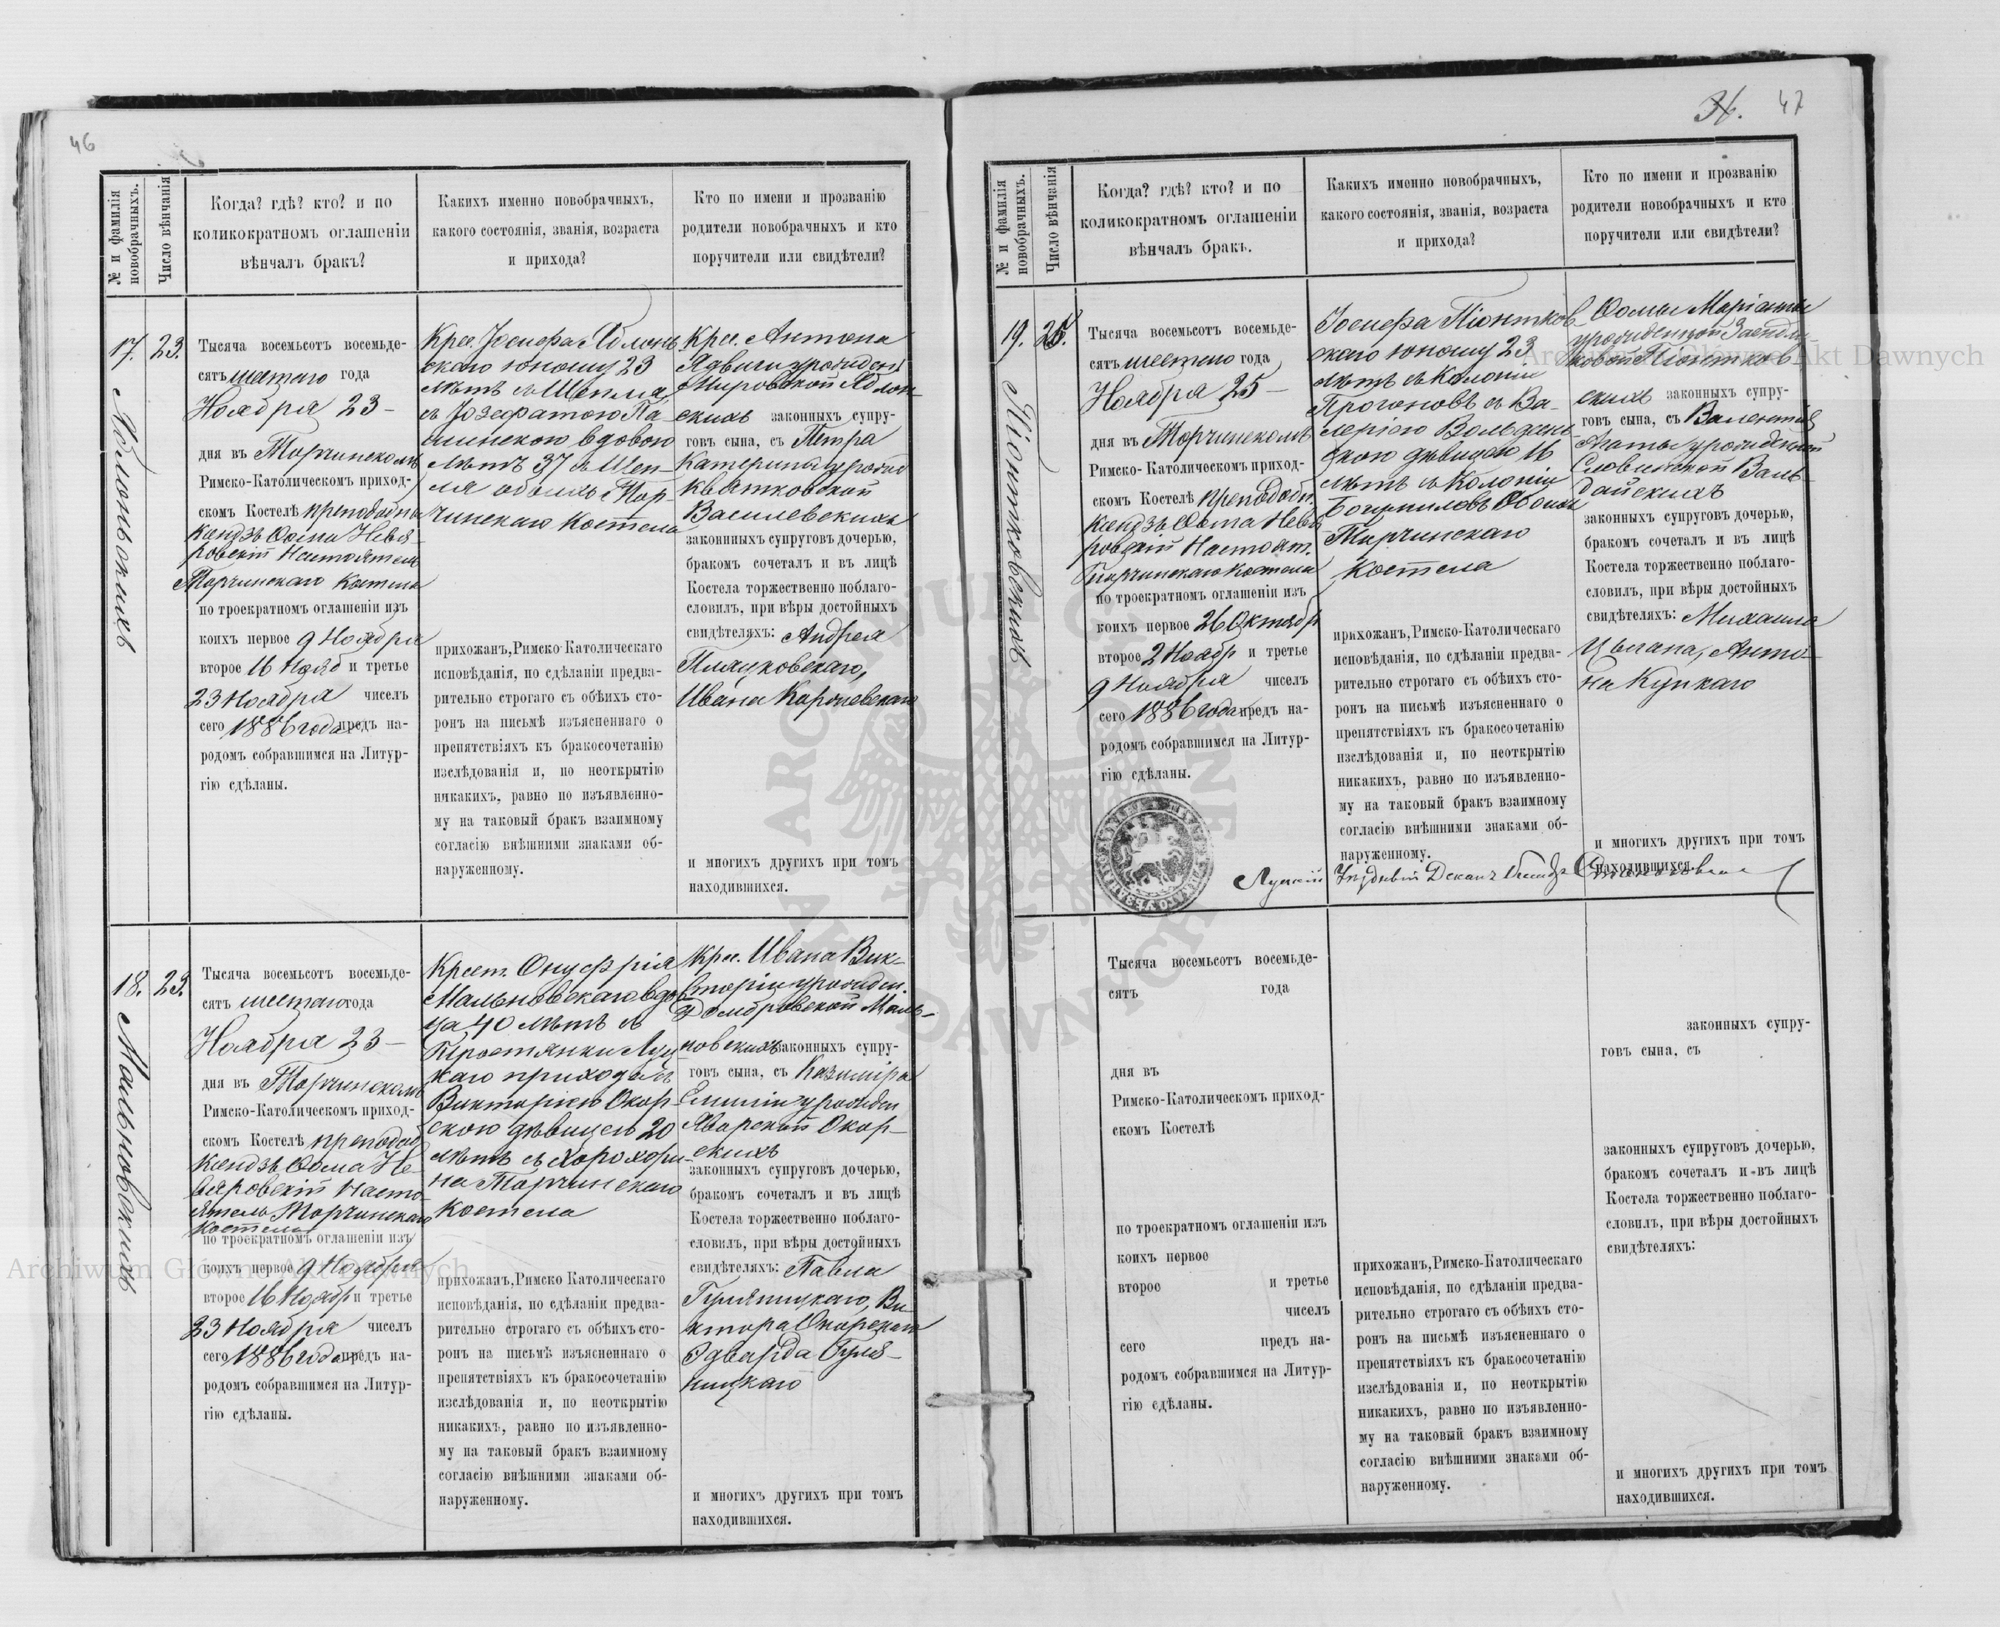 46
№ и фамилія новобрачныхъ.
Число вѣнчанія
Когда? гдѣ? кто? и по
коликократномъ оглашеніи
вѣнчалъ бракъ?
Какихъ именно новобрачныхъ,
какого состоянія, званія, возраста
и прихода?
Кто по имени и прозванію
родители новобрачныхъ и кто
поручители или свидѣтели?
17.
Яблоньскихъ
23.
Тысяча восемьсотъ восемьде-
сятъ шестаго года
Ноября 23 –
дня въ Торчинскомъ
Римско-Католическомъ приход-
скомъ Костелѣ преподобн.
Ксендзъ Ѳома Невя-
ровскій Настоятель
Торчинскаго Костела
по троекратномъ оглашеніи изъ
коихъ первое 9 Ноября
второе 16 Нояб и третье
23 Ноября чиселъ
сего 1886 года предъ на-
родомъ собравшимся на Литур-
гію сдѣланы.
Крес. Іосифа Яблонь
скаго юношу 23
лѣтъ съ Щепля,
съ Іозефатою Па-
шинскою вдовою
лѣтъ 37 съ Щеп-
ля обоихъ Тор-
чинскаго Костела
прихожанъ, Римско-Католическаго
исповѣданія, по сдѣланіи предва-
рительно строгаго съ обѣихъ сто-
ронъ на письмѣ изъясненнаго о
препятствіяхъ къ бракосочетанію
изслѣдованія и, по неоткрытію
никакихъ, равно по изъявленно-
му на таковый бракъ взаимному
согласію внѣшними знаками об-
наруженному.
Крес. Антона
Ядвиги урожден
Мировской Яблон-
скихъ законныхъ супру-
говъ сына, съ Петра
Катерины урожд
Квятковской
Василевскихъ
законныхъ супруговъ дочерью,
бракомъ сочеталъ и въ лицѣ
Костела торжественно поблаго-
словилъ, при вѣры достойныхъ
свидѣтеляхъ: Андрея
Пляцковскаго,
Ивана Карчевскаго
и многихъ другихъ при томъ
находившихся.
18.
Мальновскихъ
23.
Тысяча восемьсотъ восемьде-
сятъ шестаго года
Ноября 23 –
дня въ Торчинскомъ
Римско-Католическомъ приход-
скомъ Костелѣ преподоб
Ксендзъ Ѳома Не-
вяровскій Насто-
ятель Торчинскаго
Костела
по троекратномъ оглашеніи изъ
коихъ первое 9 Ноября
второе 16 Нояб и третье
23 Ноября чиселъ
сего 1886 года предъ на-
родомъ собравшимся на Литур-
гію сдѣланы.
Крест. Онуфрія
Мальновскаго вдов
ца 40 лѣтъ съ
Простянки Луц
каго прихода съ
Викторіею Окор-
скою дѣвицею 20
лѣтъ съ Хорохори-
на Торчинскаго
Костела
прихожанъ, Римско Католическаго
исповѣданія, по сдѣланіи предва-
рительно строгаго съ обѣихъ сто-
ронъ на письмѣ изъясненнаго о
препятствіяхъ къ бракосочетанію
изслѣдованія и, по неоткрытію
никакихъ, равно по изъявленно-
му на таковый бракъ взаимному
согласію внѣшними знаками об-
наруженному.
Крес. Ивана Вик-
торіи урожден.
Домбровской Маль-
новскихъ законныхъ супру-
говъ сына, съ Казиміра
Емиліи урожден
Яворской Окор-
скихъ
законныхъ супруговъ дочерью,
бракомъ сочеталъ и въ лицѣ
Костела торжественно поблаго-
словилъ, при вѣры достойныхъ
свидѣтеляхъ: Павла
Гуляницкаго, Ви-
ктора Окорскаго
Эдварда Гуля-
ницкаго
и многихъ другихъ при томъ
находившихся.
47
№ и фамилія новобрачныхъ.
Число вѣнчанія
Когда? гдѣ? кто? и по
коликократномъ оглашеніи
вѣнчалъ бракъ.
Какихъ именно новобрачныхъ,
какого состоянія, званія, возраста
и прихода?
Кто по имени и прозванію
родители новобрачныхъ и кто
поручители или свидѣтели?
19.
Піонтковскихъ
25.
Тысяча восемьсотъ восемьде-
сятъ шестаго года
Ноября 25 –
дня въ Торчинскомъ
Римско-Католическомъ приход-
скомъ Костелѣ преподобн.
Ксендзъ Ѳома Невя
ровскій Настоят.
Торчинскаго Костела
по троекратномъ оглашеніи изъ
коихъ первое 26 Октябр
второе 2 Нояб и третье
9 Ноября чиселъ
сего 1886 года предъ на-
родомъ собравшимся на Литур-
гію сдѣланы.
Іосифа Піонтков-
скаго юношу 23
лѣтъ съ Колоніи
Прогоновъ съ Ва-
леріею Вольдань-
скою дѣвицею 16
лѣтъ съ Колоніи
Обоихъ
Торчинскаго
Костела
прихожанъ, Римско-Католическаго
исповѣданія, по сдѣланіи предва-
рительно строгаго съ обѣихъ сто-
ронъ на письмѣ изъясненнаго о
препятствіяхъ къ бракосочетанію
изслѣдованія и, по неоткрытію
никакихъ, равно по изъявленно-
му на таковый бракъ взаимному
согласію внѣшними знаками об-
наруженному.
Ѳомы Маріанны
урожденной
Піонтков
скихъ законныхъ супру-
говъ сына, съ Валентія
Агаты урожденной
Словинской Валь-
дайскихъ
законныхъ супруговъ дочерью,
бракомъ сочеталъ и въ лицѣ
Костела торжественно поблаго-
словилъ, при вѣры достойныхъ
свидѣтеляхъ: Михаила
Цыгана, Анто-
на Куцкаго
и многихъ другихъ при томъ
находившихся.
Луцкій Уѣздный Деканъ
Тысяча восемьсотъ восемьде-
сятъ года
дня въ
Римско-Католическомъ приход-
скомъ Костелѣ
по троекратномъ оглашеніи изъ
коихъ первое
второе и третье
чиселъ
сего предъ на-
родомъ собравшимся на Литур-
гію сдѣланы.
прихожанъ, Римско-Католическаго
исповѣданія, по сдѣланіи предва-
рительно строгаго съ обѣихъ сто-
ронъ на письмѣ изъясненнаго о
препятствіяхъ къ бракосочетанію
изслѣдованія и, по неоткрытію
никакихъ, равно по изъявленно-
му на таковый бракъ взаимному
согласію внѣшними знаками об-
наруженному.
законныхъ супру-
говъ сына, съ
законныхъ супруговъ дочерью,
бракомъ сочеталъ и въ лицѣ
Костела торжественно поблаго-
словилъ, при вѣры достойныхъ
свидѣтеляхъ:
и многихъ другихъ при томъ
находившихся.
Archiwum Główne Akt Dawnych
Archiwum Główne Akt Dawnych
ARCHIWUM GŁÓWNE AKT DAWNYCH